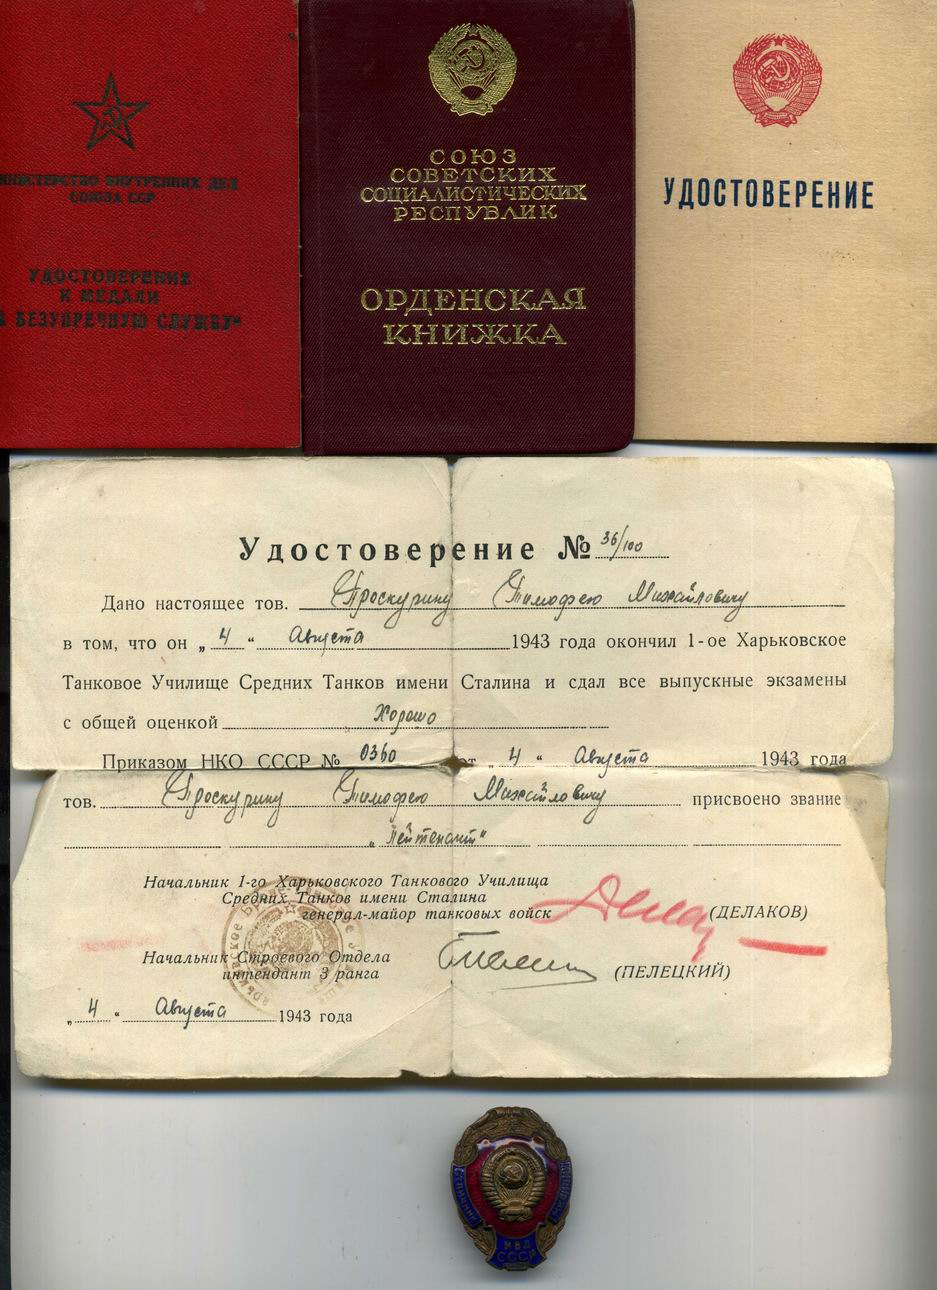 МИНИСТЕРСТВО ВНУТРЕННИХ ДЕЛ
СОЮЗА ССР
УДОСТОВЕРЕНИЕ
К МЕДАЛИ
БЕЗУПРЕЧНУЮ СЛУЖБУ“
СОЮЗ
СОВЕТСКИХ
СОЦИАЛИСТИЧЕСКИХ
РЕСПУБЛИК
ОРДЕНСКАЯ
КНИЖКА
УДОСТОВЕРЕНИЕ
Удостоверение № 36/100
Дано настоящее тов. Проскурину Тимофею Михайловичу
в том, что он „4“ Августа 1943 года окончил 1-ое Харьковское
Танковое Училище Средних Танков имени Сталина и сдал все выпускные экзамены
с общей оценкой Хорошо
Приказом НКО СССР № 0360 от „4“ Августа 1943 года
тов. Проскурину Тимофею Михайловичу присвоено звание
„Лейтенант“
Начальник 1-го Харьковского Танкового Училища
Средних Танков имени Сталина
генерал-майор танковых войск (ДЕЛАКОВ)
Начальник Строевого Отдела
интендант 3 ранга (ПЕЛЕЦКИЙ)
„4“ Августа 1943 года
МВД
СССР